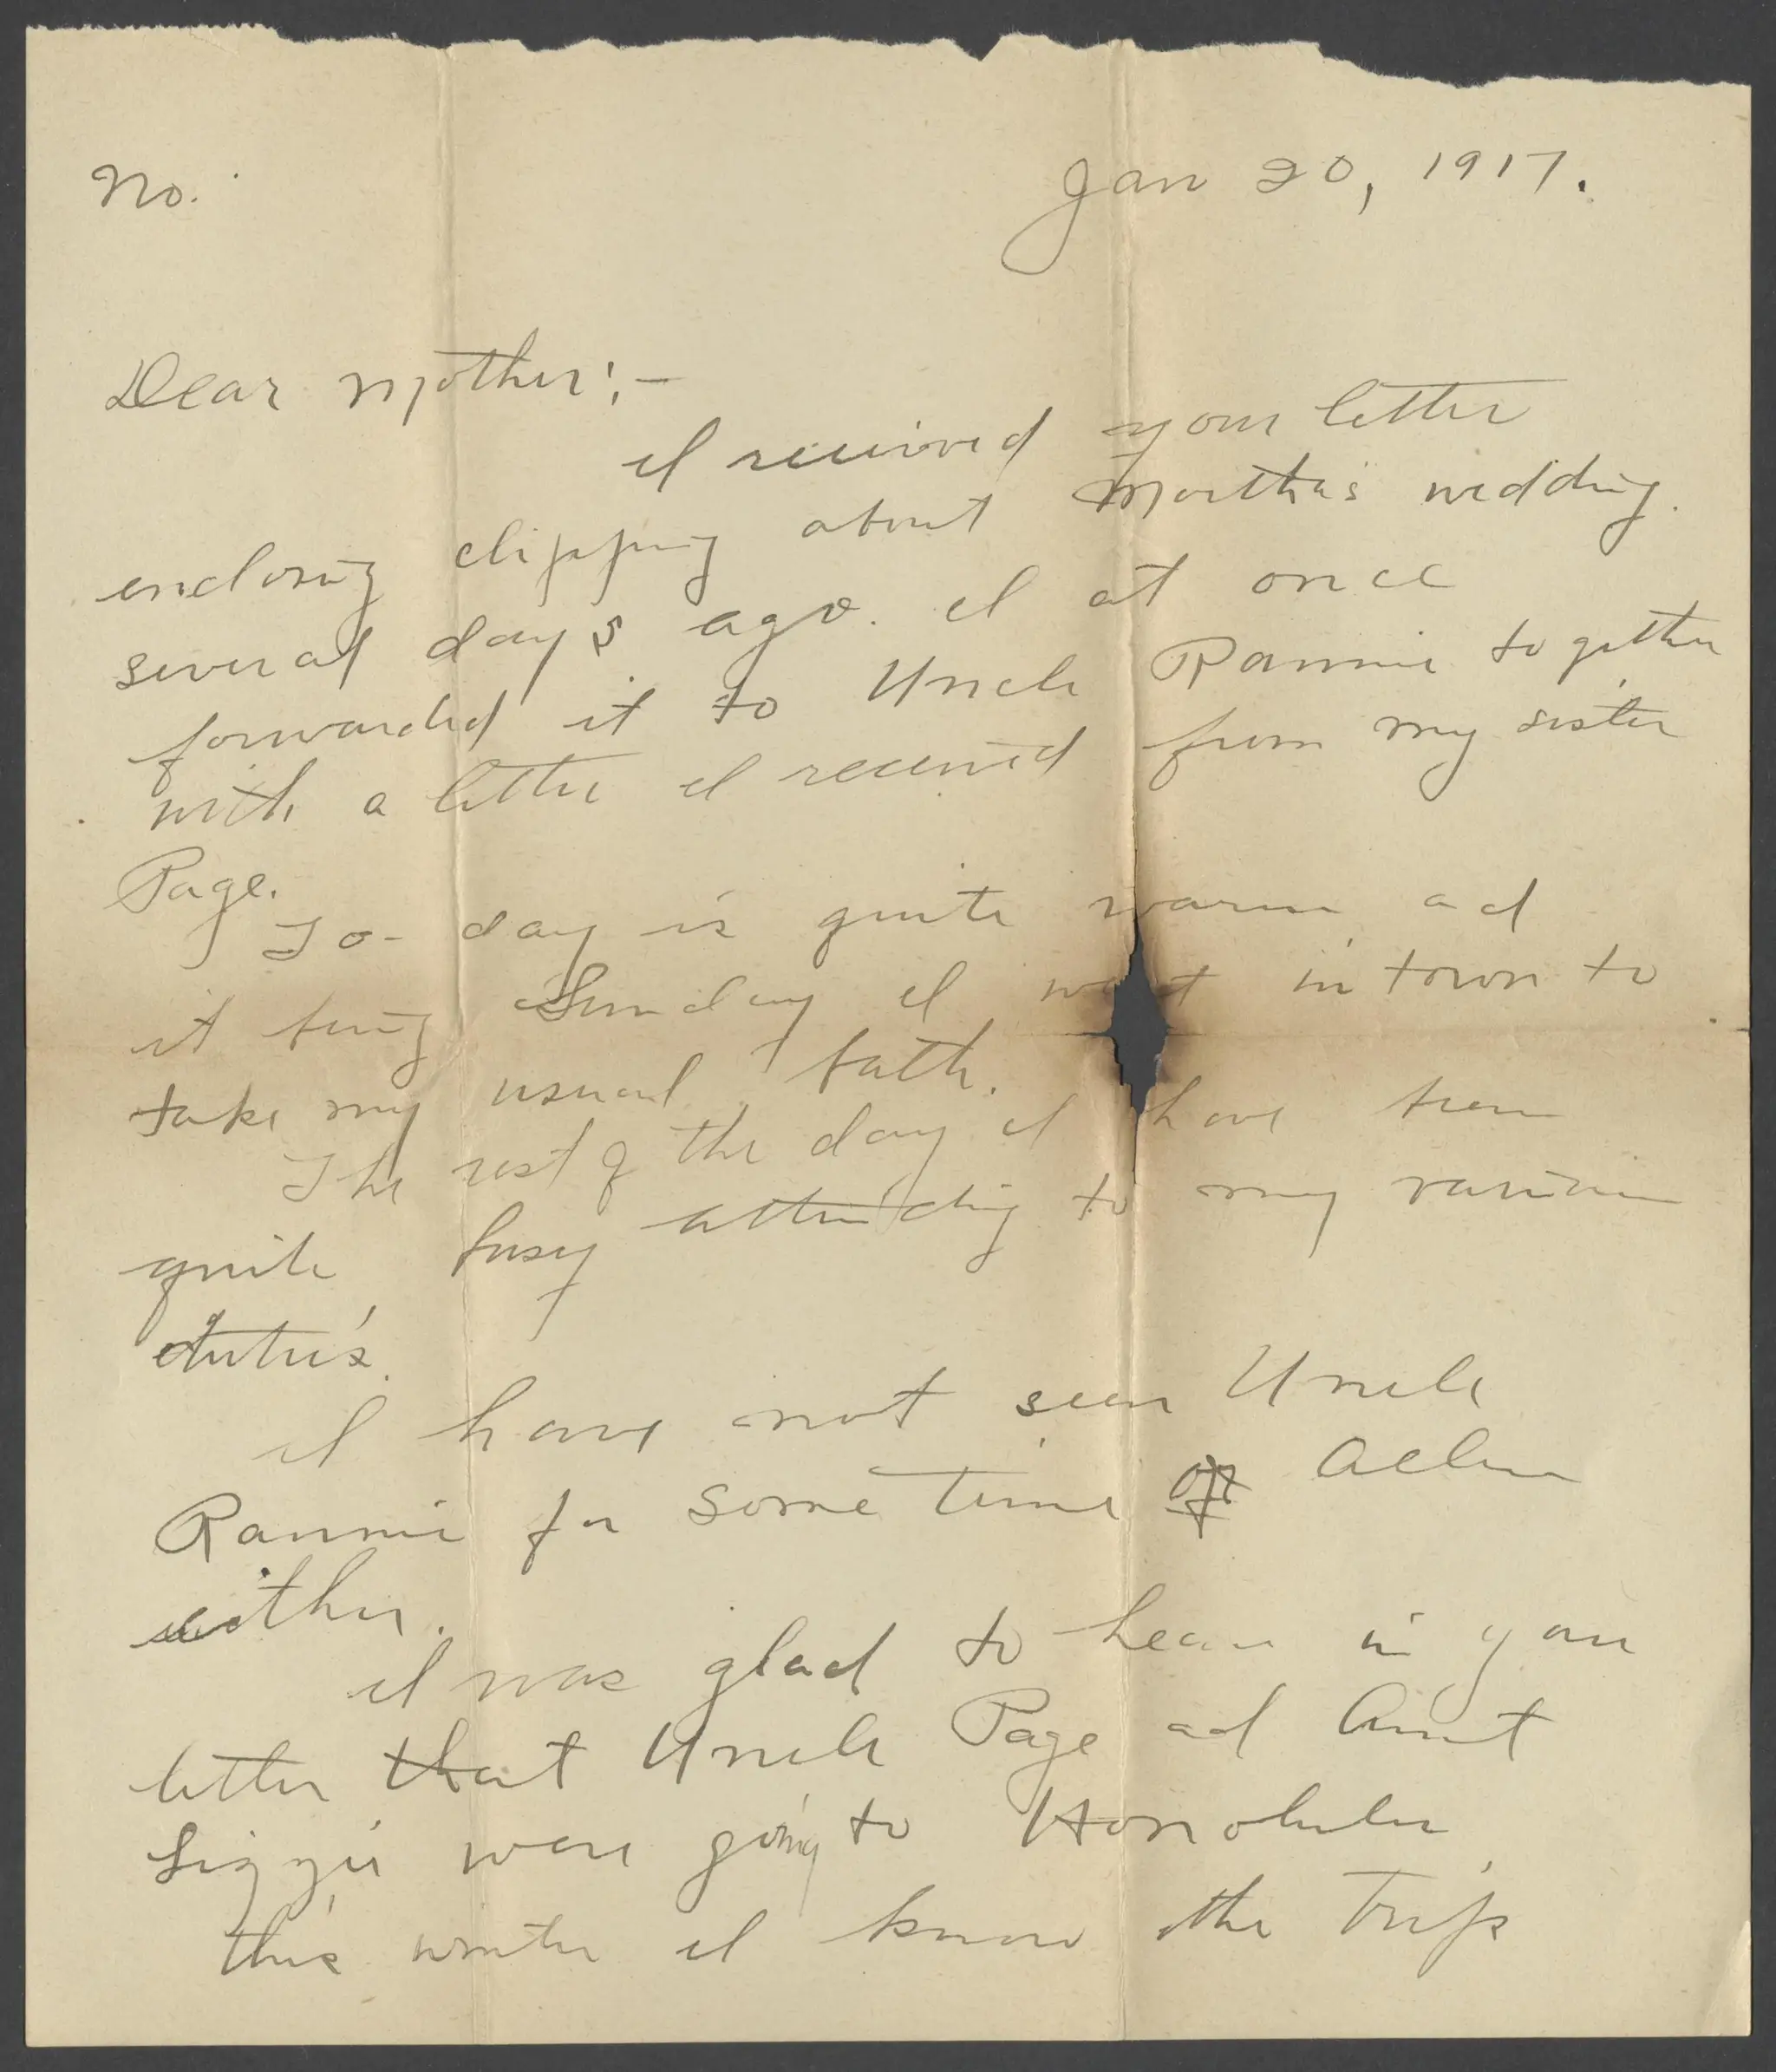 No.
Jan 20, 1917.
Dear Mother:-
I received your letter
enclosing clipping about Martha's wedding
several days ago. I at once
forwarded it to Uncle Rannie together
with a letter I received from my sister
Page.
To-day is quite warm ad
it being Sunday I went in town to
take my usual bath.
The rest of the day I have been
quite busy attending to my various
duties.
I have not seen Uncle
Rannie for some time or
either.
I was glad to hear in your
letter that Uncle Page ad Aunt
Lizzie were going to Honolulu
this winter I know the trip